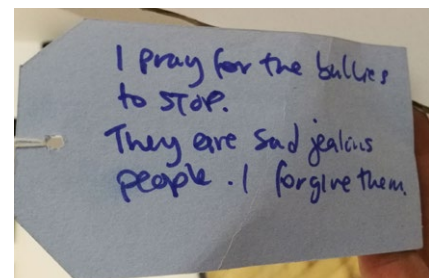 I pray for the bullies
to STOP.
They are sad jealous
people. I forgive them.